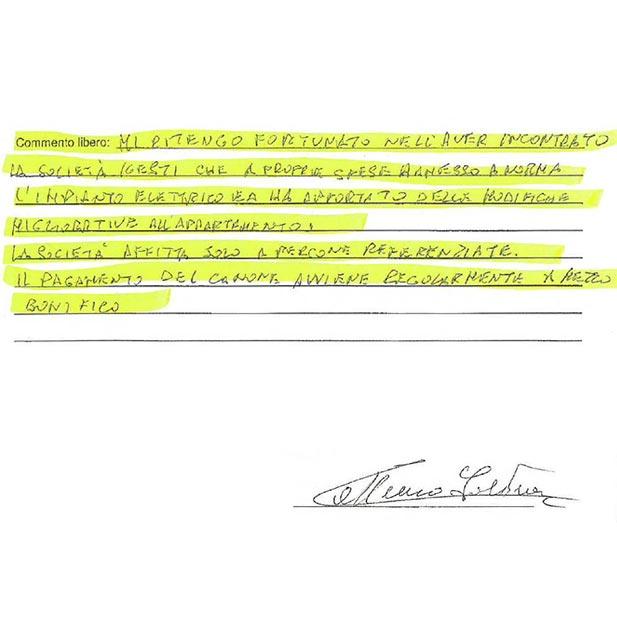 Commento libero: MI RITENGO FORTUNATO NELL'AVER INCONTRATO
LA SOCIETÀ IGESTI CHE A PROPRIE SPESE HA MESSO A NORMA
L'IMPIANTO ELETTRICO ED HA APPORTATO DELLE MODIFICHE
MIGLIORATIVE ALL'APPARTAMENTO.
LA SOCIETÀ AFFITTA SOLO A PERSONE REFERENZIATE.
IL PAGAMENTO DEL CANONE AVVIENE REGOLARMENTE A MEZZO
BONIFICO